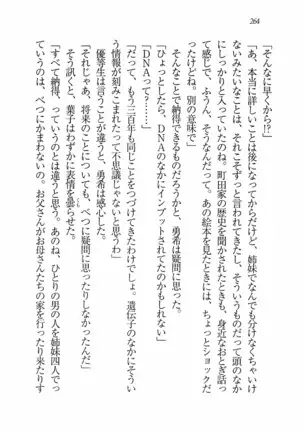 264
「そんなに早くから!?」
「あ、本当に詳しいことは後になってからだけど、姉妹でなんでも分けなくちゃいけ
ないみたいなことは、それこそずっと言われてきたし、そういうものだって頭のなか
にしっかりと入っていたのね。町田家の歴史を聞かされたときも、身近なおとぎ話っ
て感じで、ふうん、そうなんだって。あの絵本を見たときには、ちょっとショックだ
ったけどね。別の意味で」
そんなことで納得できるものだろうかと、勇希は疑問に思った。
「ひょっとしたら、DNAのなかにインプットされてたのかもしれない」
「DNAって?……」
「だって、もう三百年も同じことをつづけてきたわけでしょ。遺伝子のなかにそうい
う情報が刻みこまれたって不思議じゃないと思うわ」
優等生は言うことが違うと、勇希は感心した。
「それじゃあ、将来のことについても、べつに疑問に思ったりしなかったんだ」
そう訊くと、葉子はわずかに表情を曇らせた。
くも
「すべて納得、っていうのとは違うと思う。あのね、ひとりの男の人を姉妹四人でっ
ていうのは、べつにかまわないの。お父さんがお母さんたちの家を行ったり来たりす